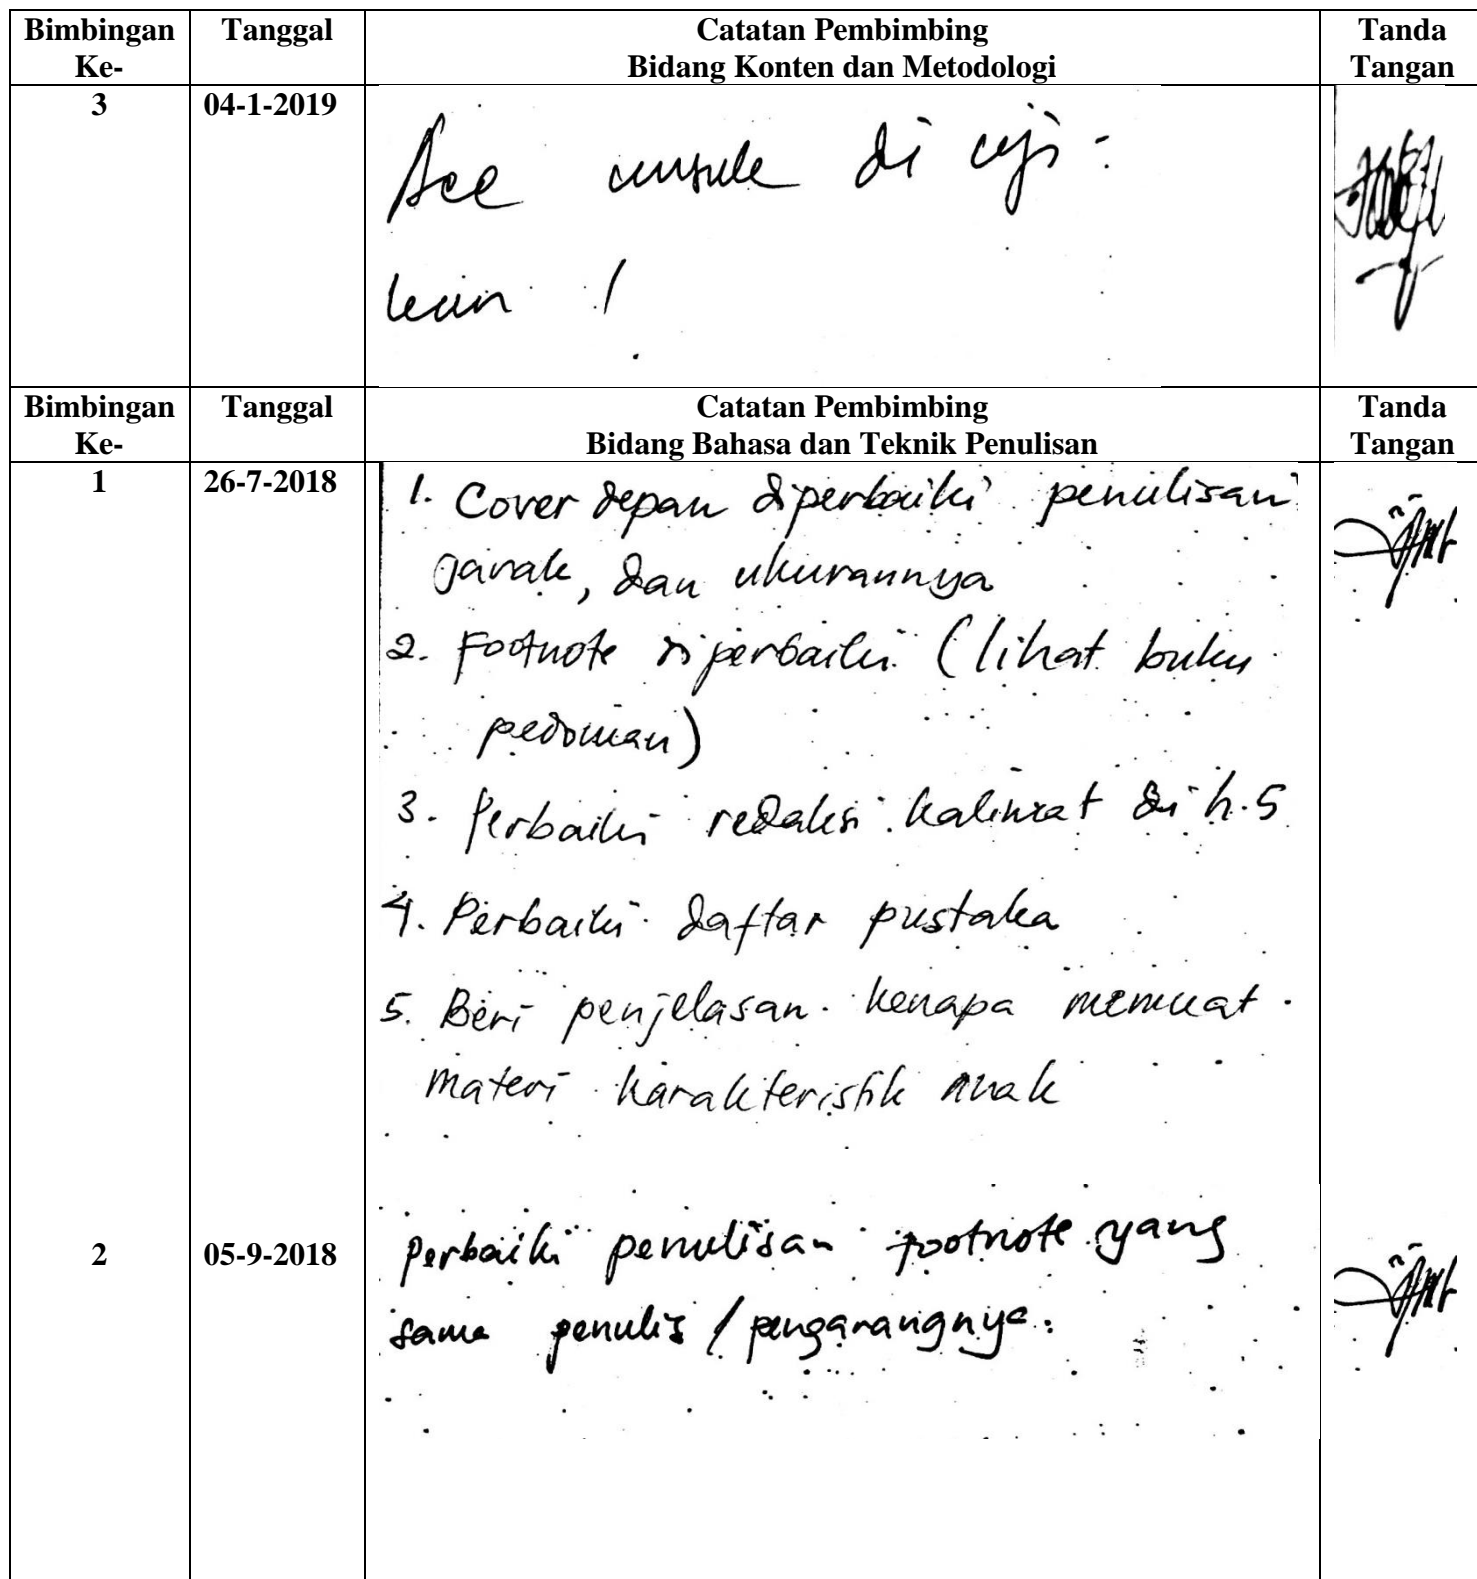 Bimbingan Ke- Tanggal Catatan Pembimbing Bidang Konten dan Metodologi Tanda Tangan
3 04-1-2019
Acc untuk di uji-
kan !
Bimbingan Ke- Tanggal Catatan Pembimbing Bidang Bahasa dan Teknik Penulisan Tanda Tangan
1 26-7-2018
1. Cover depan diperbaiki penulisan
jarak, dan ukurannya
2. Footnote diperbaiki (lihat buku
pedoman)
3. Perbaiki redaksi kalimat di h.5
4. Perbaiki daftar pustaka
5. Beri penjelasan kenapa memuat
materi karakteristik anak
2 05-9-2018
perbaiki penulisan footnote yang
sama penulis / pengarangnya.